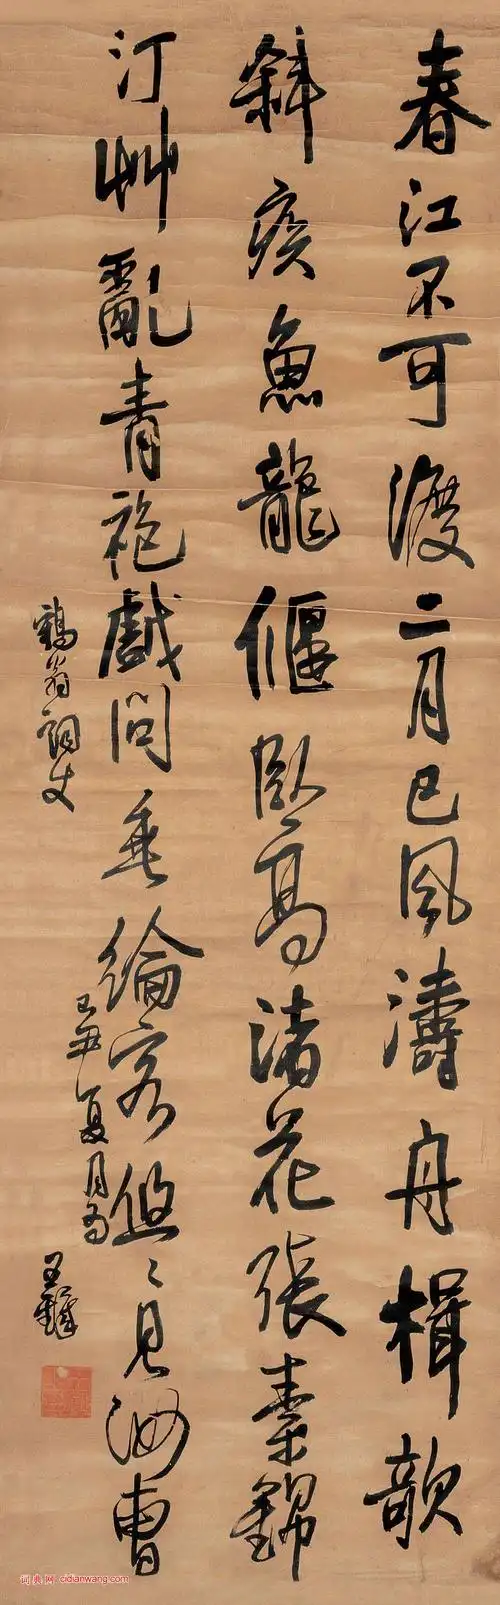 春江不可渡二月已風濤舟楫欹
斜疾魚龍偃臥高渚花張素錦
汀艸亂青袍戲問垂綸客悠〻見汝曹
鶴翁詞丈
己丑夏月
王鐸
词典网 cidianwang.com